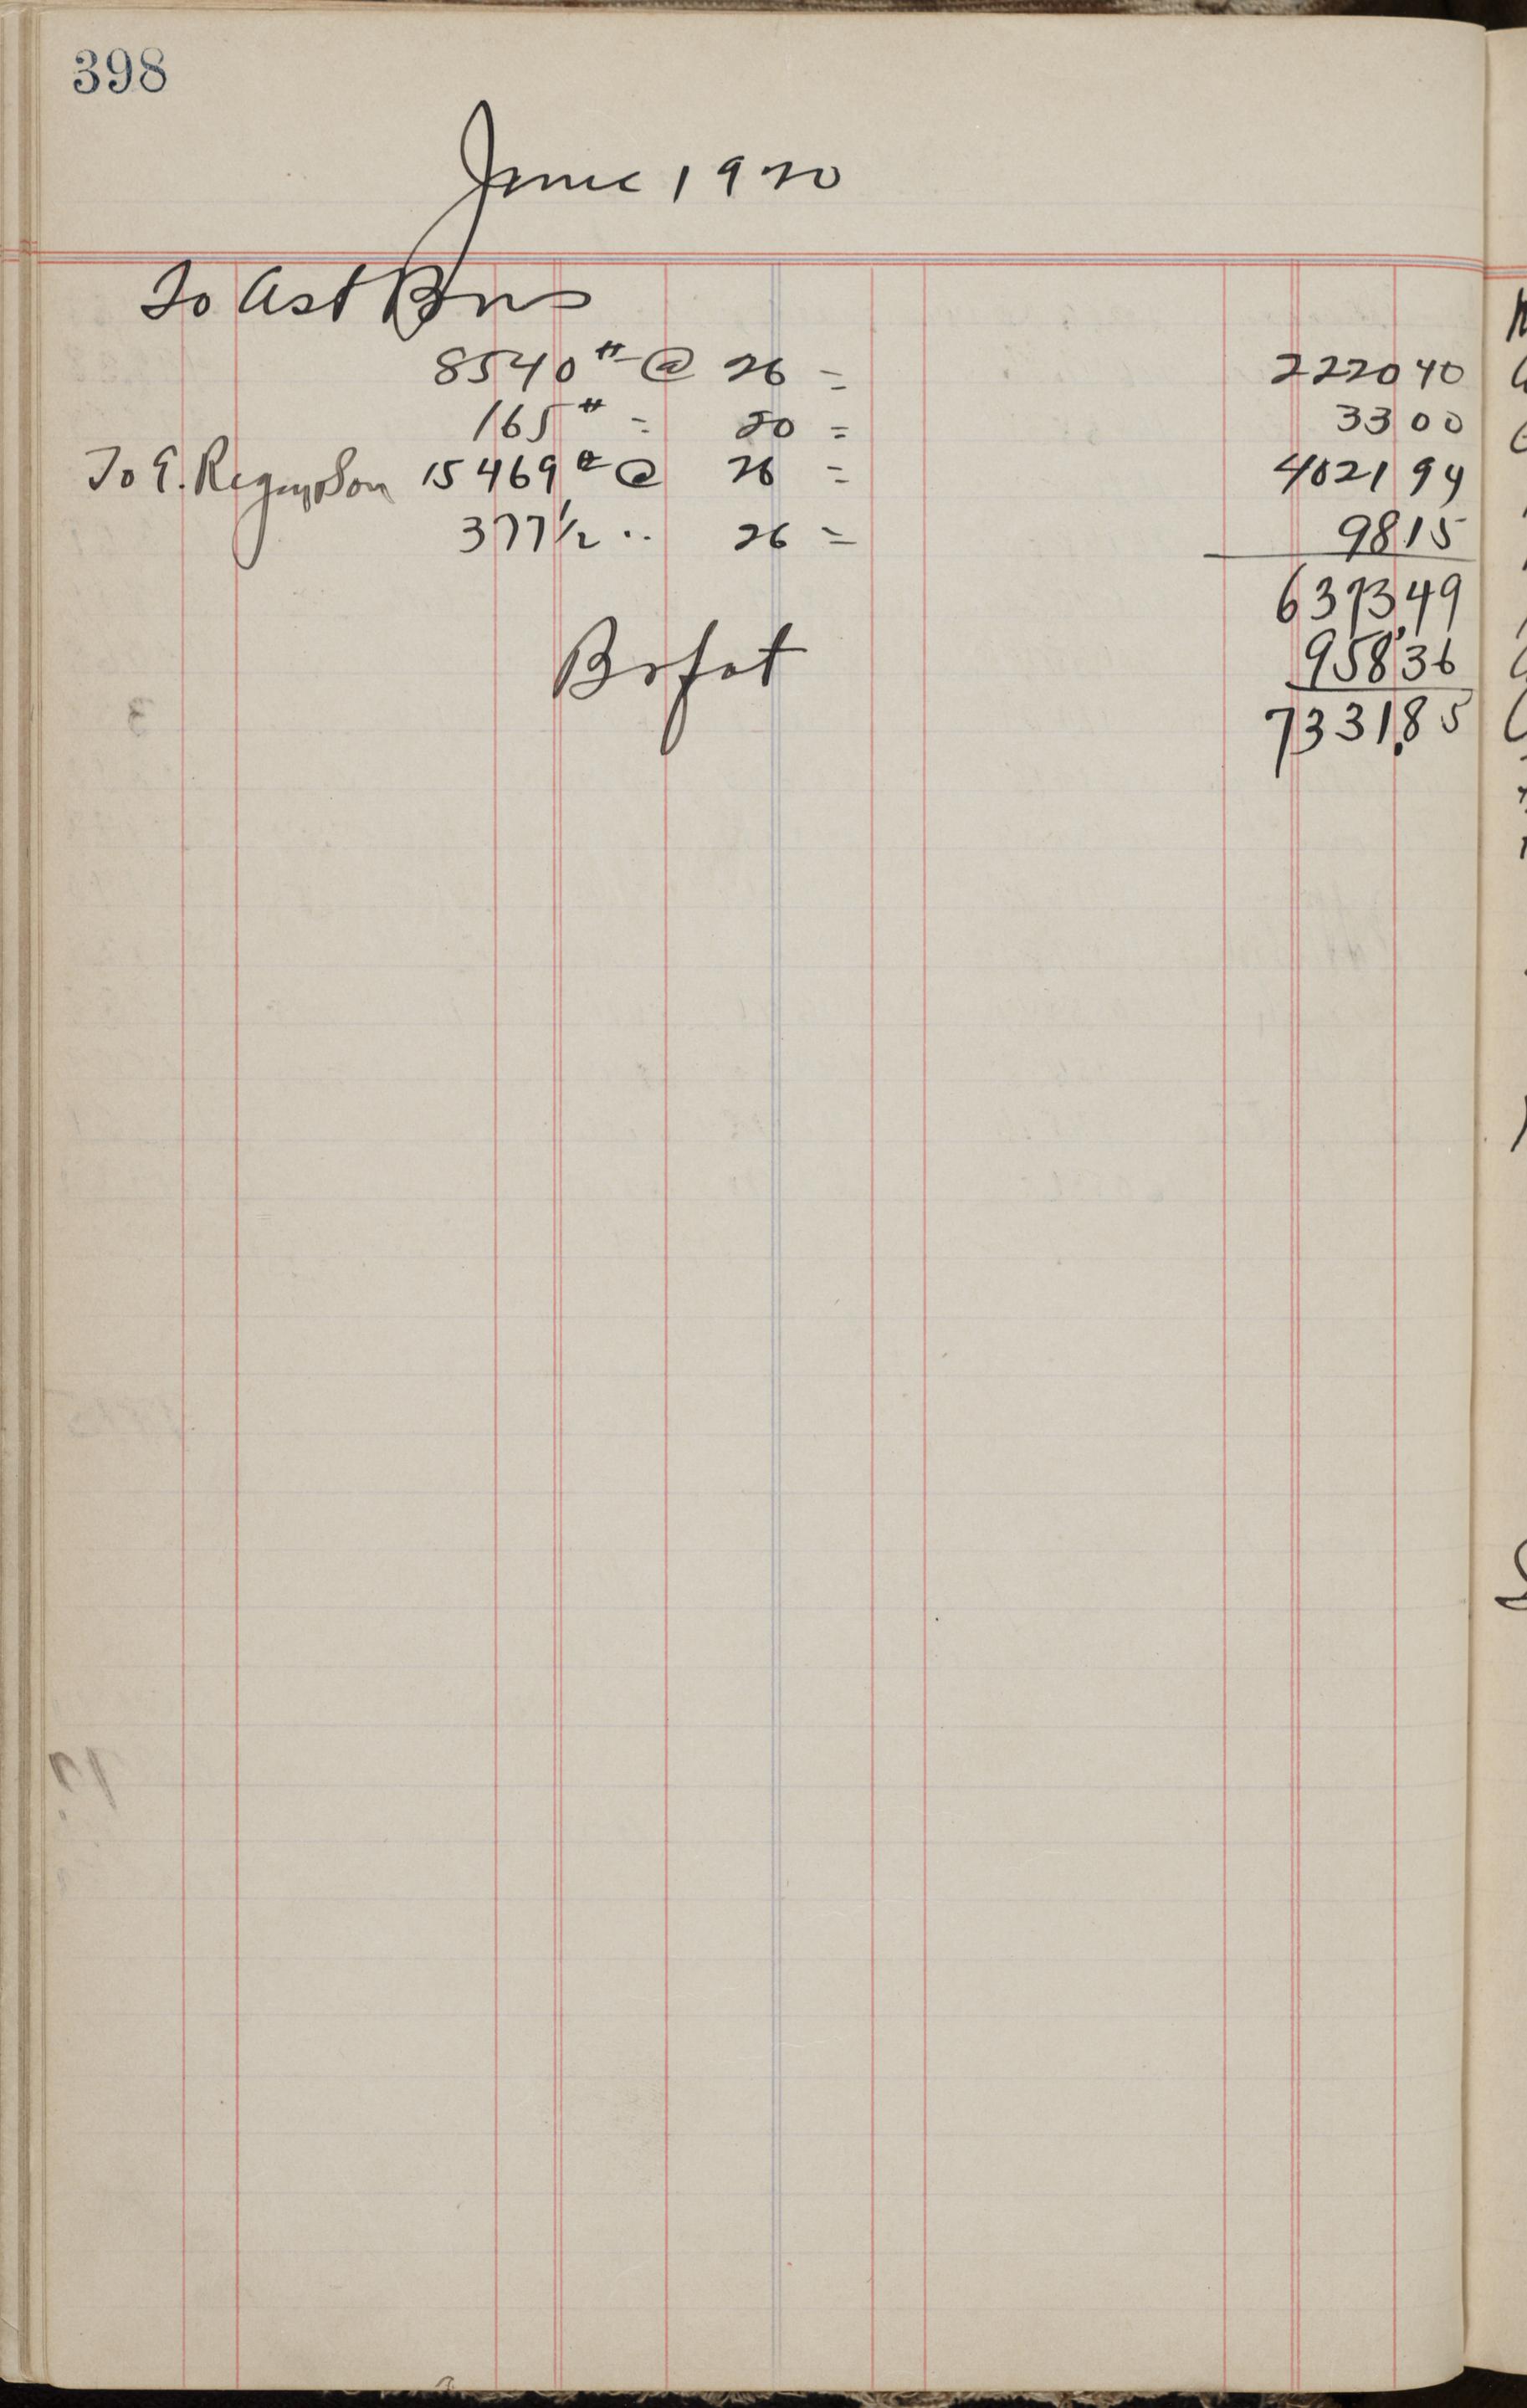 398
June 1920
To Ast Bros
8540 # @ 26 = 2220 40
165 # = 20 = 33 00
To E. 15469 # @ 26 = 4021 94
377 1/2 .. 26 = 98 15
6373,49
958,36
7331.85